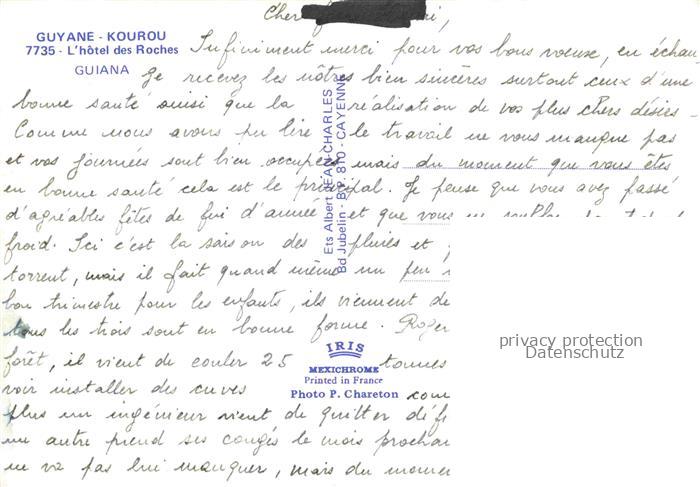 Cher
GUYANE - KOUROU
7735 - L'hôtel des Roches
GUIANA
Infiniment merci pour vos bons voeux, en échan
ge recevez les nôtres bien sincères surtout ceux d'une
bonne santé ainsi que la réalisation de vos plus chers désirs -
Comme nous avons pu lire le travail ne vous manque pas
et vos journées sont bien occupées mais du moment que vous êtes
en bonne santé cela est le principal. Je pense que vous avez passé
d'agréables fêtes de fin d'année et que vous
froid. Ici c'est la saison des pluies et
torrent, mais il fait quand même un peu
bon trimestre pour les enfants, ils viennent de
tous les trois sont en bonne forme. Roger
forêt, il vient de couler 25 tonnes
voir installer des cuves com
plus un ingénieur vient de quitter défi
un autre prend ses congés le mois prochai
ne va pas lui manquer, mais du momen
Ets Albert JEAN-CHARLES
Bd Jubelin - B.P. 810 - CAYENNE
IRIS
MEXICHROME
Printed in France
Photo P. Chareton
privacy protection
Datenschutz